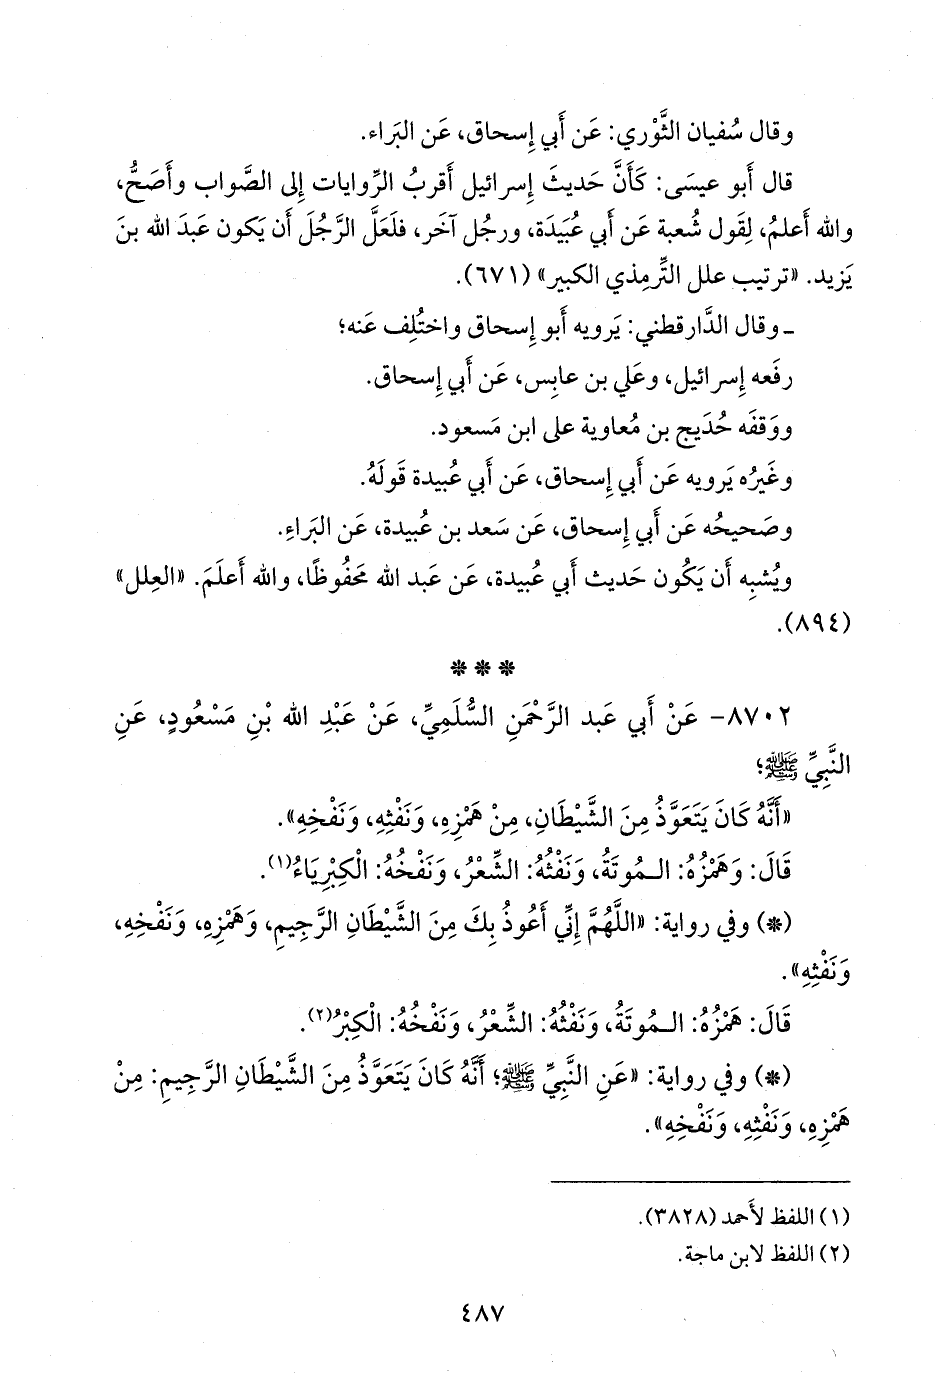 وقال سُفيان الثَّوْري: عَن أَبي إِسحاق، عَن البَراء.
قال أَبو عيسَى: كَأَنَّ حَديثَ إِسرائيل أَقربُ الرِّوايات إِلى الصَّواب وأَصَحُّ،
والله أَعلمُ، لِقَول شُعبة عَن أَبي عُبَيدَة، ورجُل آخَر، فلَعَلَّ الرَّجُلَ أَن يَكون عَبدَ الله بنَ
يَزيد. «ترتيب علل التِّرمِذي الكبير» (٦٧١).
ـ وقال الدَّارقطني: يَرويه أَبو إِسحاق واختُلِف عَنه؛
رفَعه إِسرائيل، وعَلي بن عابِس، عَن أَبي إِسحاق.
ووَقفَه حُدَيج بن مُعاوية على ابن مَسعود.
وغَيرُه يَرويه عَن أَبي إِسحاق، عَن أَبي عُبيدة قَولَهُ.
وصَحيحُه عَن أَبي إِسحاق، عَن سَعد بن عُبيدة، عَن البَراءِ.
ويُشبِه أَن يَكُون حَديث أَبي عُبيدة، عَن عَبد الله مَحفُوظًا، والله أَعلَمَ. «العِلل»
(٨٩٤).
***
٨٧٠٢- عَنْ أَبي عَبد الرَّحْمَنِ السُّلَمِيِّ، عَنْ عَبْدِ الله بْنِ مَسْعُودٍ، عَنِ
النَّبِيِّ ﷺ؛
«أَنَّهُ كَانَ يَتَعَوَّذُ مِنَ الشَّيْطَانِ، مِنْ هَمْزِهِ، وَنَفْثِهِ، وَنَفْخِهِ».
قَالَ: وَهَمْزُهُ: الـمُوتَةُ، وَنَفْثُهُ: الشِّعْرُ، وَنَفْخُهُ: الْكِبْرِيَاءُ(١).
(*) وفي رواية: «اللَّهُمَّ إِنِّي أَعُوذُ بِكَ مِنَ الشَّيْطَانِ الرَّجِيمِ، وَهَمْزِهِ، وَنَفْخِهِ،
وَنَفْثِهِ».
قَالَ: هَمْزُهُ: الـمُوتَةُ، وَنَفْثُهُ: الشِّعْرُ، وَنَفْخُهُ: الْكِبْرُ(٢).
(*) وفي رواية: «عَنِ النَّبِيِّ ﷺ؛ أَنَّهُ كَانَ يَتَعَوَّذُ مِنَ الشَّيْطَانِ الرَّجِيمِ: مِنْ
هَمْزِهِ، وَنَفْثِهِ، وَنَفْخِهِ».
(١) اللفظ لأَحمد (٣٨٢٨).
(٢) اللفظ لابن ماجة.
٤٨٧